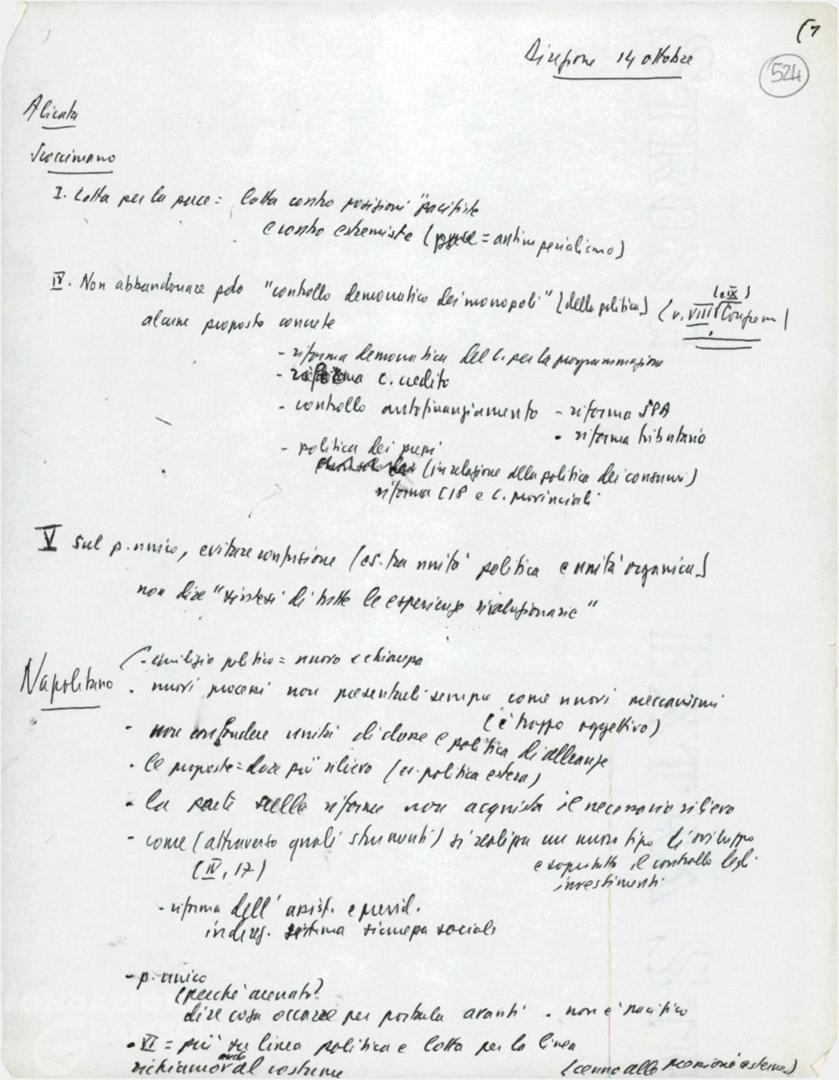 Direzione 14 ottobre
524
Alicata
Scoccimarro
I. Lotta per la pace = lotta contro posizioni "pacifiste
e contro estremiste ( = antimperialismo)
IV. Non abbandonare "controllo democratico dei monopoli" (della politica) (v. VIII Conferen)
(e IX)
alcune proposte concrete
- riforma democratica del C. per la programmazione
- riforma c. credito
- controllo autofinanziamento - riforma SPA
- riforma tributaria
- politica dei prezzi
(in relazione alla politica dei consumi)
riforma CIP e C. provinciali
V Sul p. unico, evitare confusione (es. tra unità politica e unità organica)
non dire "sintesi di tutte le esperienze rivoluzionarie"
Napolitano
- politico = nuovo chiarezza
- nuovi processi non presentarli sempre come nuovi meccanismi
(è troppo oggettivo)
- non confondere unità di classe e politica di alleanze
- le proposte = dare più rilievo (es. politica estera)
- la parte sulle riforme non acquista il necessario rilievo
- come (attraverso quali strumenti) si realizza un nuovo tipo di sviluppo
(IV, 17)
e soprattutto il controllo degli
investimenti
- riforma dell'assist. e previd.
sistema sicurezza sociale
- p. unico
(perché accenato?
dire cosa occorre per portarla avanti - non è pacifico
- VI = più su linea politica e lotta per la linea
richiamo anche al costume
(cenno alle esterne)